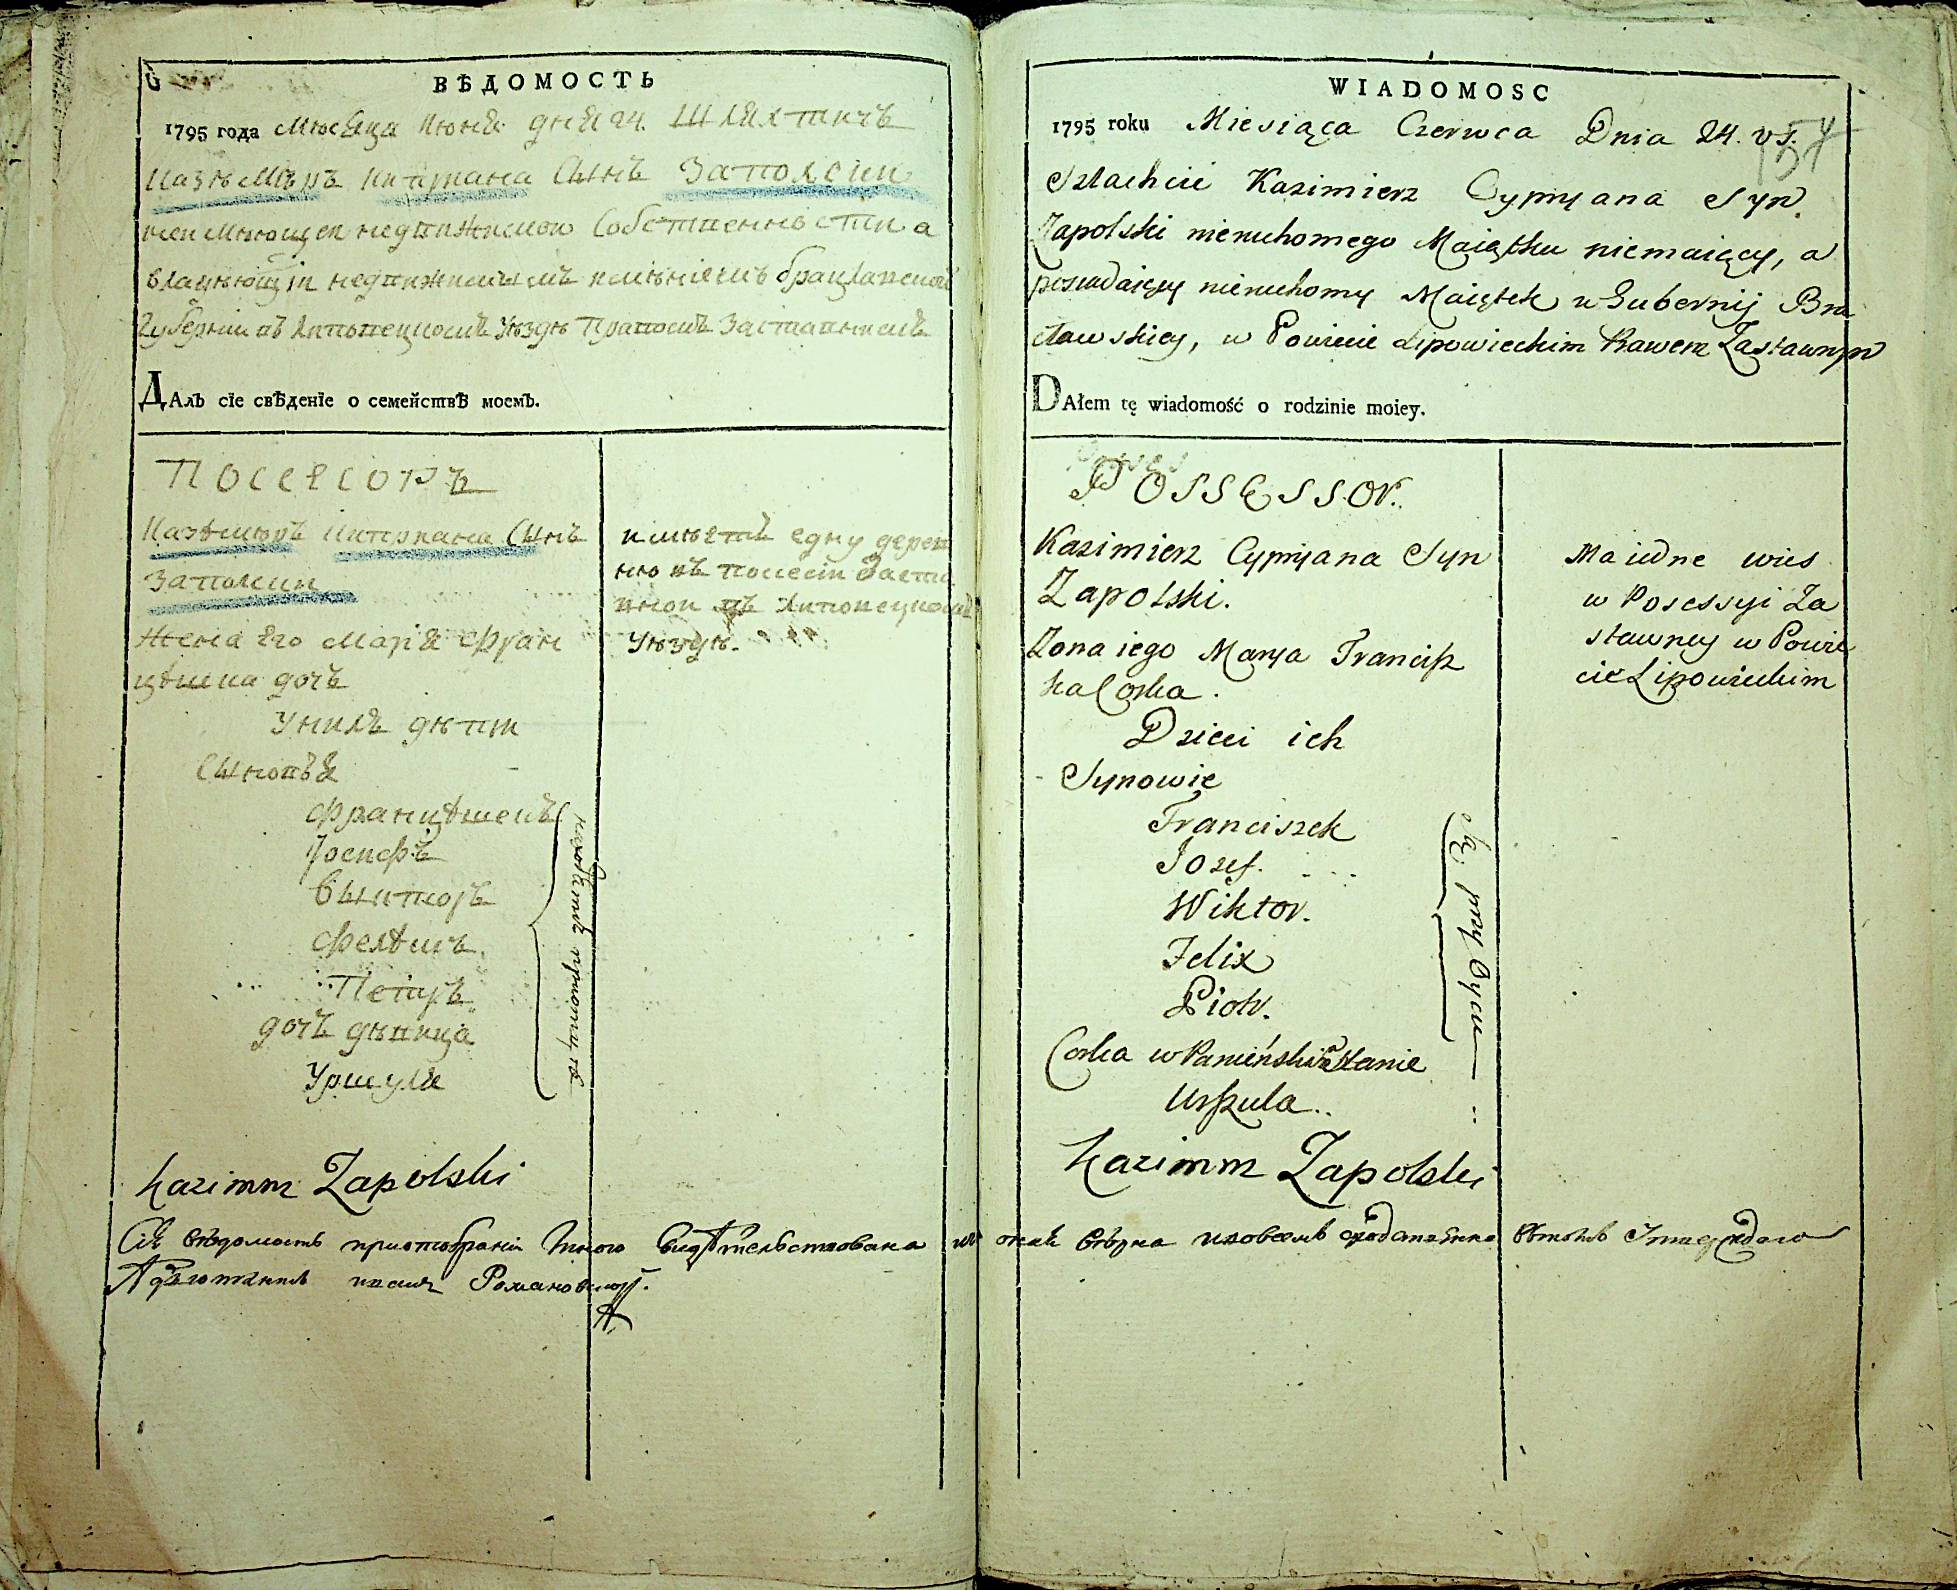 ВѢДОМОСТЬ
1795 года Мюсяца Июня дня 24. Шляхтичъ
Казѣмѣръ Киприана Сынъ Заполски
неимѣющеи недвижимои Собственности а
владѣющіи недвижимымъ имѣніемъ брацлавской
Губерніи въ Липовецкомъ Уѣздѣ Правомъ Заставнымъ
ДАлъ сіе свѣденіе о семействѣ моемъ.
Посесоръ
Казѣмѣръ Киприана Сынъ
Заполски
Жена Его Марія Фран
цѣшка дочъ
У нихъ дѣти
Сыновья
Францѣшекъ
Іосифъ
Выкторъ
Фелѣксъ
Петръ
дочъ дѣвица
Уршуля
находятся при отцѣ
имѣетъ едну дерев
ню въ посесіи Заста
вной въ Липовецкомъ
Уѣздѣ.
Kazimirz Zapolski
WIADOMOSC
1795 roku Miesiąca Czerwca Dnia 24. v s.
Szlachcic Kazimierz Cypryana Syn
Zapolski nieruchomego Maiątku niemaiący, a
posiadaiący nieruchomy Maiątek w Gubernij Bra
cławskiey, w Powiecie Lipowieckim Prawem Zastawnym
DAłem tę wiadomość o rodzinie moiey.
POSSESSOR.
Kazimierz Cypryana Syn
Zapolski.
Zona iego Marya Francisz
ka Corka.
Dzieci ich
Synowie
Franciszek
Jozef.
Wiktor.
Felix
Piotr.
Corka w Panieńskim Stanie
Urszula..
są przy Oycu
Ma iedne wies
w Posessyi Za
stawney w Powie
cie Lipowieckim
Kazimirz Zapolski
Сія вѣдомость